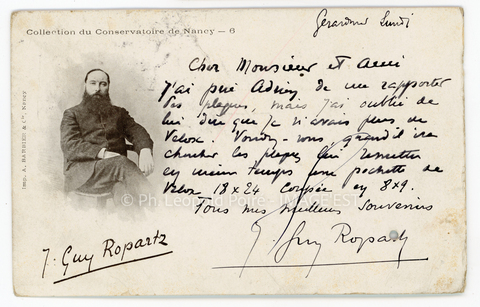 Collection du Conservatoire de Nancy — 6
Gérardmer Lundi
Cher Monsieur et Ami
J'ai prié Adrien de me rapporter
des plaques, mais j'ai oublié de
lui dire que je n'avais plus de
Velox. Voudrez vous, quand il ira
chercher les plaques lui remettre
en même temps une pochette de
Velox 18x24 coupée en 8x9.
Tous mes meilleurs souvenirs
J. Guy Ropartz
J. Guy Ropartz
Imp. A. BARBIER & Cie, Nancy
© Ph. Léopold Poiré - IMAGE'EST